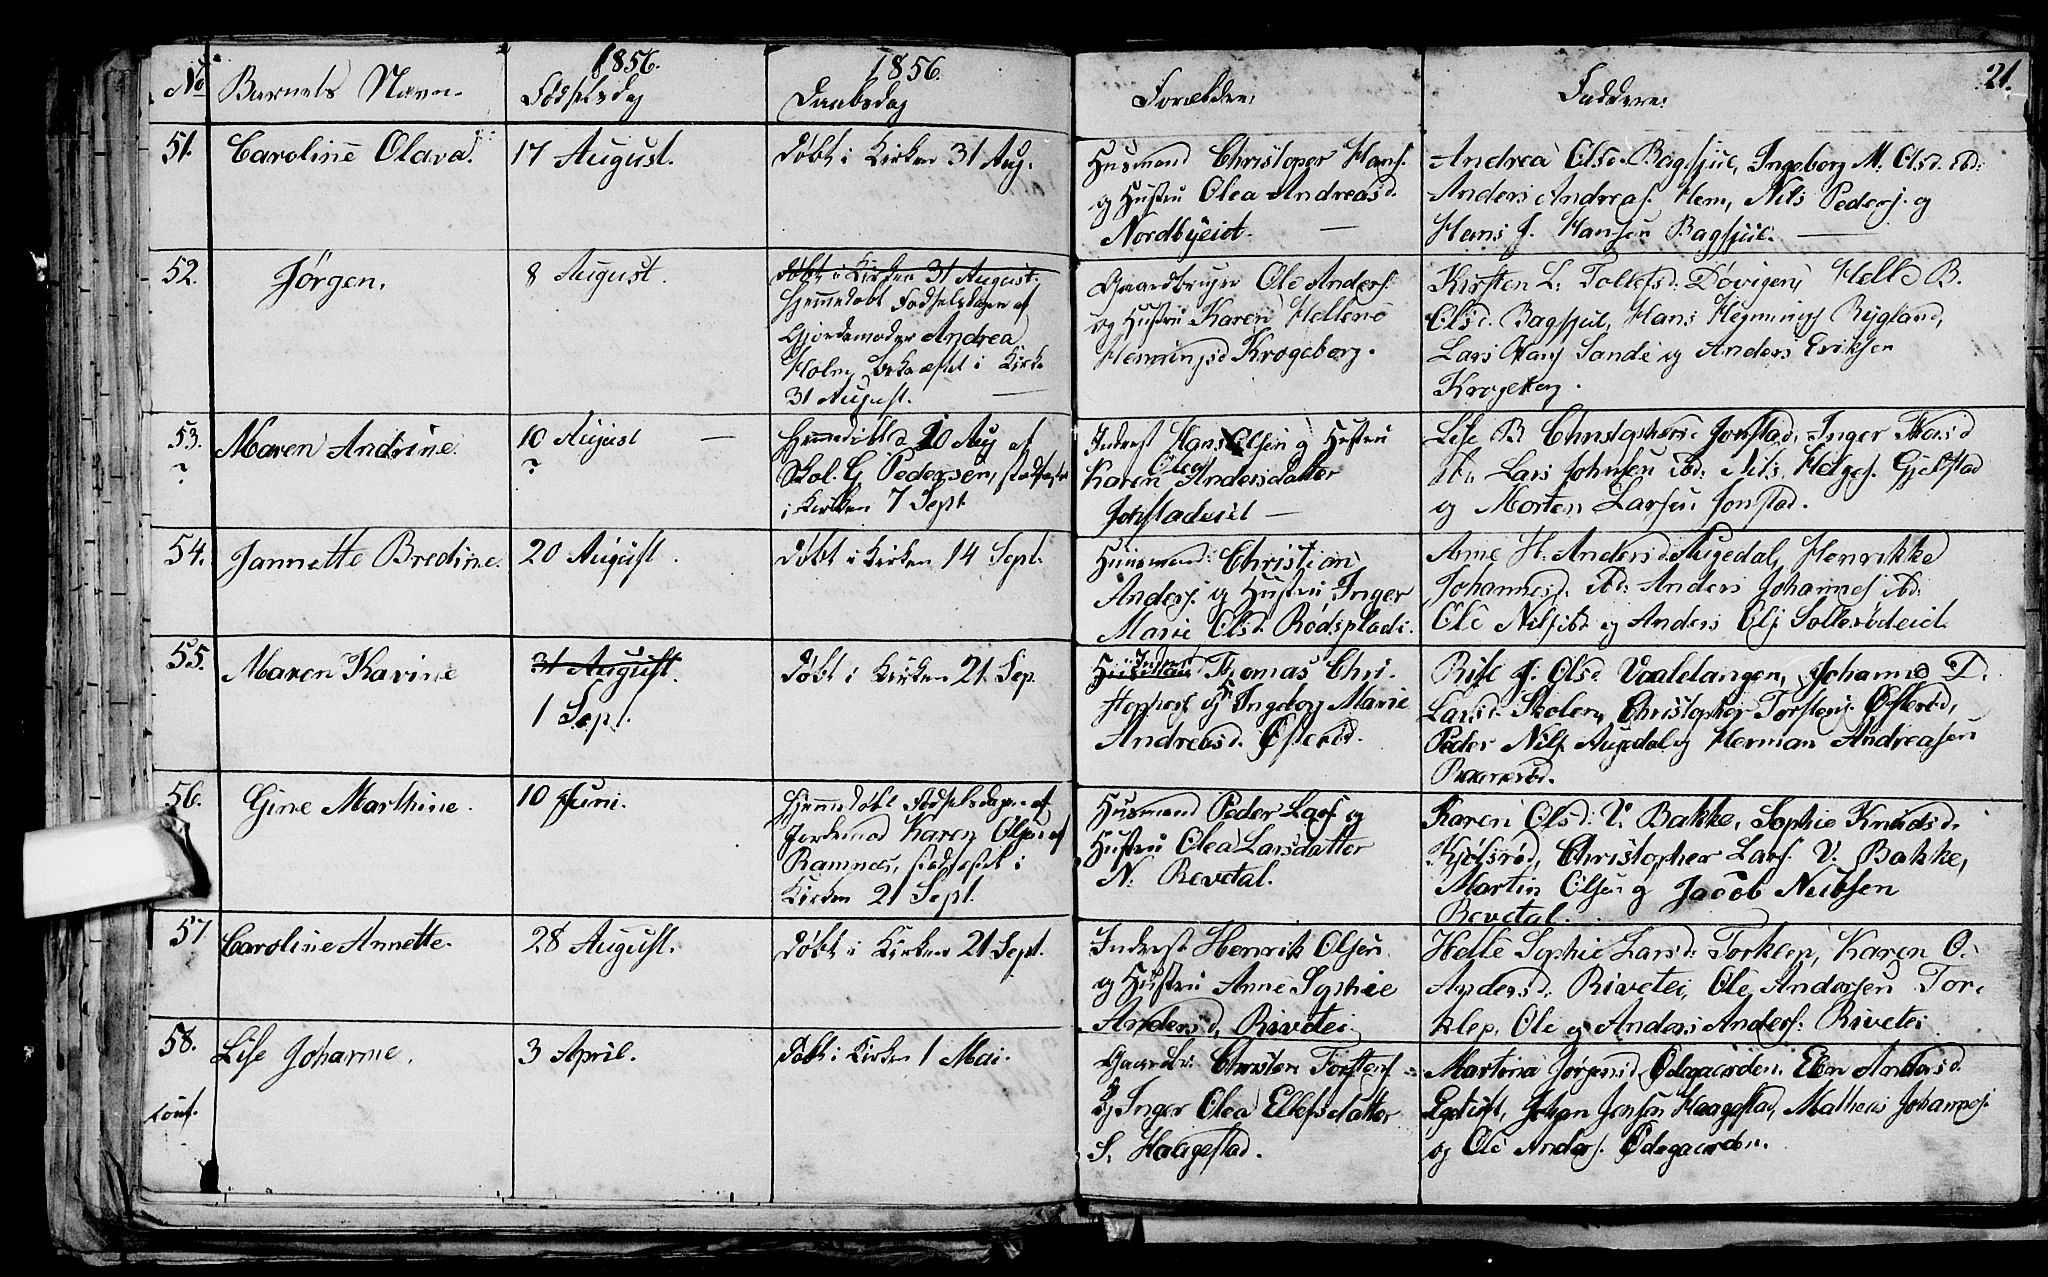 21.
No Barnets Navn. 1856. Fødselsdag 1856. Daabsdag Forældre: Faddere:
51. Caroline Olava. 17 August. Døbt i Kirken 31 Aug.
Husmand Christopher Hans.
og Hustru Olea Andreasd.
Nordbyeiet.
Andrea Olsd. Bagsjul, Ingeborg M. Olsd. ibd:
Anders Andreas. Hem, Nils Peders. og
Hans J. Hansen Bagsjul.
52. Jørgen. 8 August.
Døbt i Kirken 31 August.
Hjemmedøbt Fødselsdagen af
Gjordemoder Andrea
Holm, bekræftet i Kirke
31 August.
Gaardbruger Ole Anders.
og Hustru Karen Hellene
Hemmingsd Krogeborg.
Kirsten L. Tollefsd. Døvigen, Helle B.
Olsd. Bagsjul, Hans Hemmings Rygland,
Lars Hans Sande og Anders Eriksen
Krogeborg.
53. ? Maren Andrine. 10 August ?
Hjemmedøbt d 10 Aug af
Skol. G. Pedersen, stadfæstet
i Kirken 7 Sept
Inderst Hans Olsen og Hustru
Karen Olea Andersdatter
Jonstadeiet
Lise B Christophers. Jonstad, Inger
ib, Lars Johnsen ibd. Nils Helges. Gjelstad
og Morten Larsen Jonstad.
54. Jannette Bredine. 20 August. Døbt i Kirken 14 Sept.
Huusmand: Christian
Anders. og Hustru Inger
Marie Olsd. Rødsplads.
Anne H. Andersd. Augedal, Henrikke
Johannesd. ibd: Anders Johannes ibd:
Ole Nils ibd og Anders Ols Solterødeid.
55. Maren Karine 31 August. 1 Sept. Døbt i Kirken 21 Sep.
Huusmand Inderst Thomas Chri-
stophers. og H. Ingeborg Marie
Andreasd. Østerød.
Rise J. Olsd Vaaletangen, Johanne D.
Larsd. Skolen, Christopher Torstens. Østerød,
Peder Nils. Augedal og Herman Andreasen
56. Gine Marthine. 10 Juni.
Hjemmedøbt Fødselsdagen af
Jordemod Karen Olsen af
Ramnæs, stadfæstet i
Kirken 21 Sept.
Husmand Peder Lars og
Hustru Olea Larsdatter
N. Revetal.
Karen Olsd. V. Bakke, Sophie Knudsd.
Kjølsrød, Christopher Lars. V. Bakke,
Martin Olsen og Jacob Neubsen
Revetal.
57. Caroline Annette. 28 August. Døbt i Kirken 21 Sept.
Inderst Henrik Olsen
og Hustru Anne Sophie
Andersd, Rivetei
Helle Sophie Larsd. Torklep, Karen O.
Andersd. Rivetei, Ole Andersen Tor-
klep, Ole og Anders Anders. Rivetei
58. Lise Johanne. 3 April. Døbt i Kirken 1 Mai.
Gaardbr. Christen Torstens.
og Inger Olea Ellefsdatter
S. Haugestad.
Martina Jørgensd Ødegaarden, Elen Andersd.
Johan Jensen Haugestad, Mathias Johannes.
og Ole Anders. Ødegaarden.